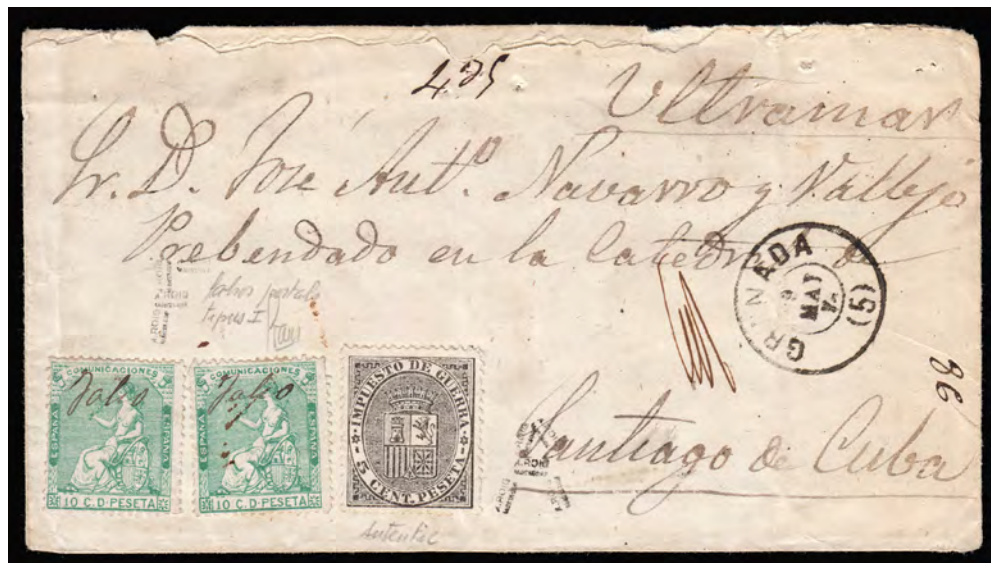 425
Ultramar
Sr. D. José Antº. Navarro y Vallejo
Prebendado en la Catedral de
Santiago de Cuba
GRANADA
8
MAY
74
(5)
36
falsos postals
tipus I
COMUNICACIONES
ESPAÑA
ESPAÑA
10 C. D. PESETA
Falso
COMUNICACIONES
ESPAÑA
ESPAÑA
10 C. D. PESETA
Falso
IMPUESTO DE GUERRA
5 CENT. PESETA
autentic
A.ROIG
A.ROIG
A.ROIG